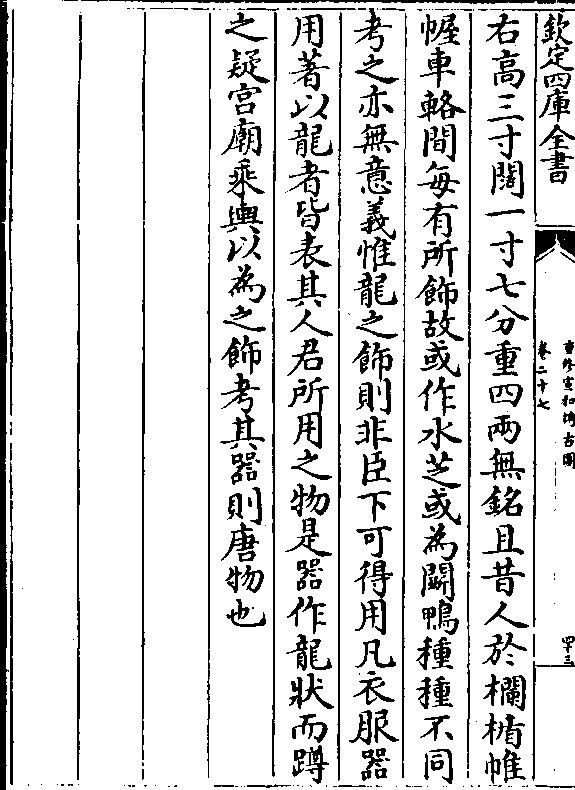 欽定四庫全書
重修宣和博古圖
卷二十七
四十三
右高三寸闊一寸七分重四兩無銘且昔人於欄楯帷
幄車輅間每有所飾故或作水芝或為鬭鴨種種不同
考之亦無意義惟龍之飾則非臣下可得用凡衣服器
用著以龍者皆表其人君所用之物是器作龍狀而蹲
之疑宫廟乘輿以為之飾考其器則唐物也